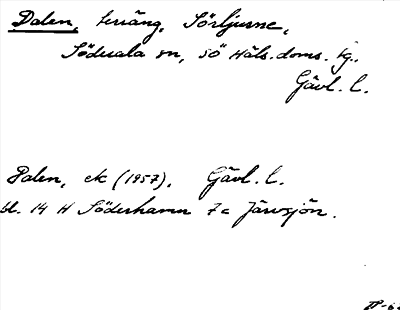 Dalen, terräng, Sörljusne,
Söderala sn, SÖ Häls. doms. tg.,
Gävl. l.
Dalen, ek (1957), Gävl. l.
bl. 14 H Söderhamn 7c Järvsjön.